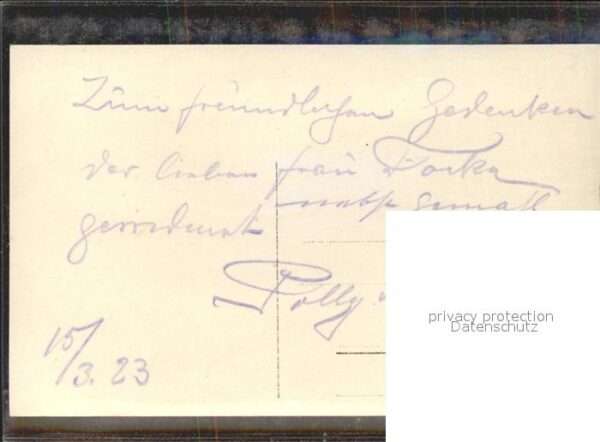 Zum freundlichen Gedenken
der lieben Frau
nebst Gemahl
gewidmet
Polly
15/3.23
privacy protection
Datenschutz